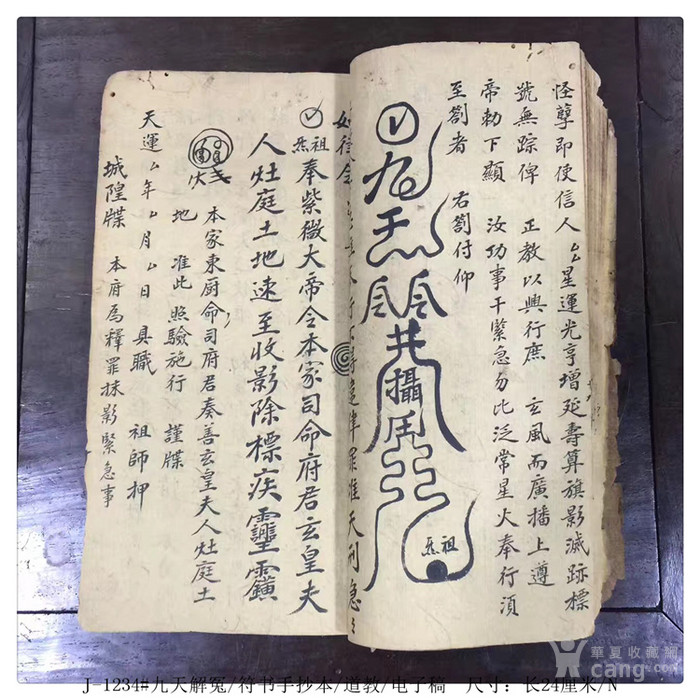 怪孽即使信人厶厶星運光亨增延壽算旗影滅跡標
號無踪俾 正教以興行庶 玄風而廣播上遵
帝勅下顯 汝功事干緊急勿比泛常星火奉行湏
至劄者 右劄付仰
攝
祖炁
律罪準天刑急
祖炁 奉紫微大帝令本家司命府君玄皇夫
人灶庭土地速至收影除標疾
本家東厨命司府君奏善玄皇夫人灶庭土
地 准此 照驗施行 謹牒
天運厶年厶月厶日 具職 祖師押
城隍牒 本府為釋罪抹影緊急事
華夏收藏網
cang.com
J-1234#九天解冤/符书手抄本/道教/电子稿 尺寸：长24厘米/N